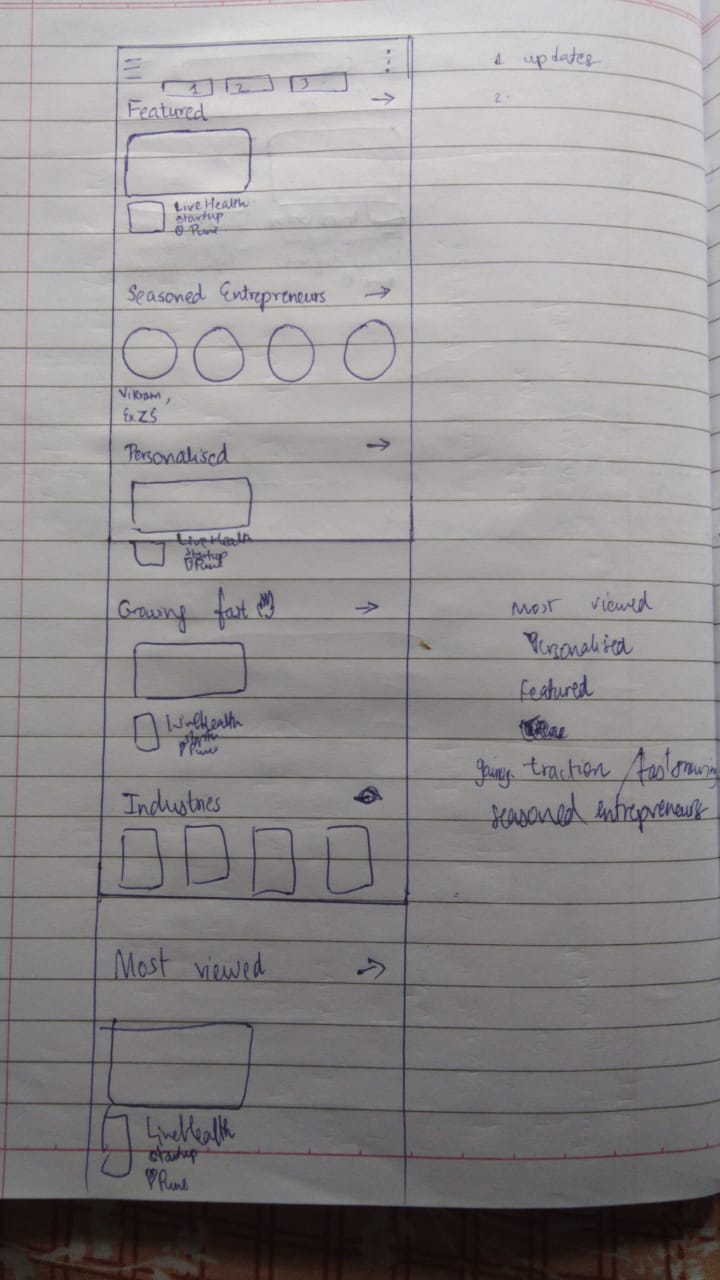 1 2 3
1 updates
2.
Featured
LiveHealth
startup
Pune
Seasoned Entrepreneurs
Vikram,
Ex ZS
Personalised
LiveHealth
Startup
Pune
Growing fast
LiveHealth
Pune
Industries
Most viewed
LiveHealth
startup
Pune
Most viewed
Personalised
Featured
traction / fast growing
seasoned entrepreneurs